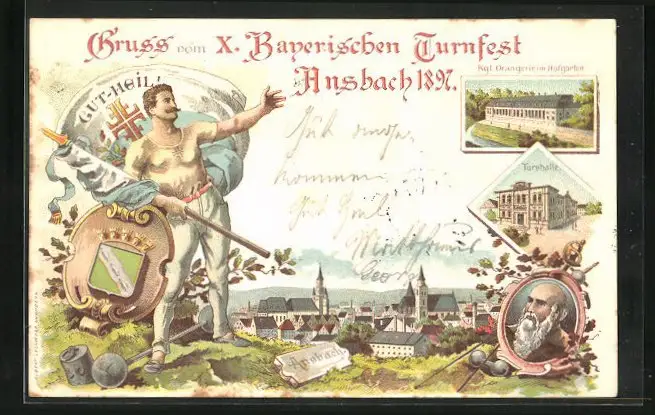 Gruss vom X. Bayerischen Turnfest
Ansbach 1897.
Kgl. Orangerie im Hofgarten
GUT-HEIL!
Turnhalle
Gut
kommen
Gut Heil
Georg
Ansbach.